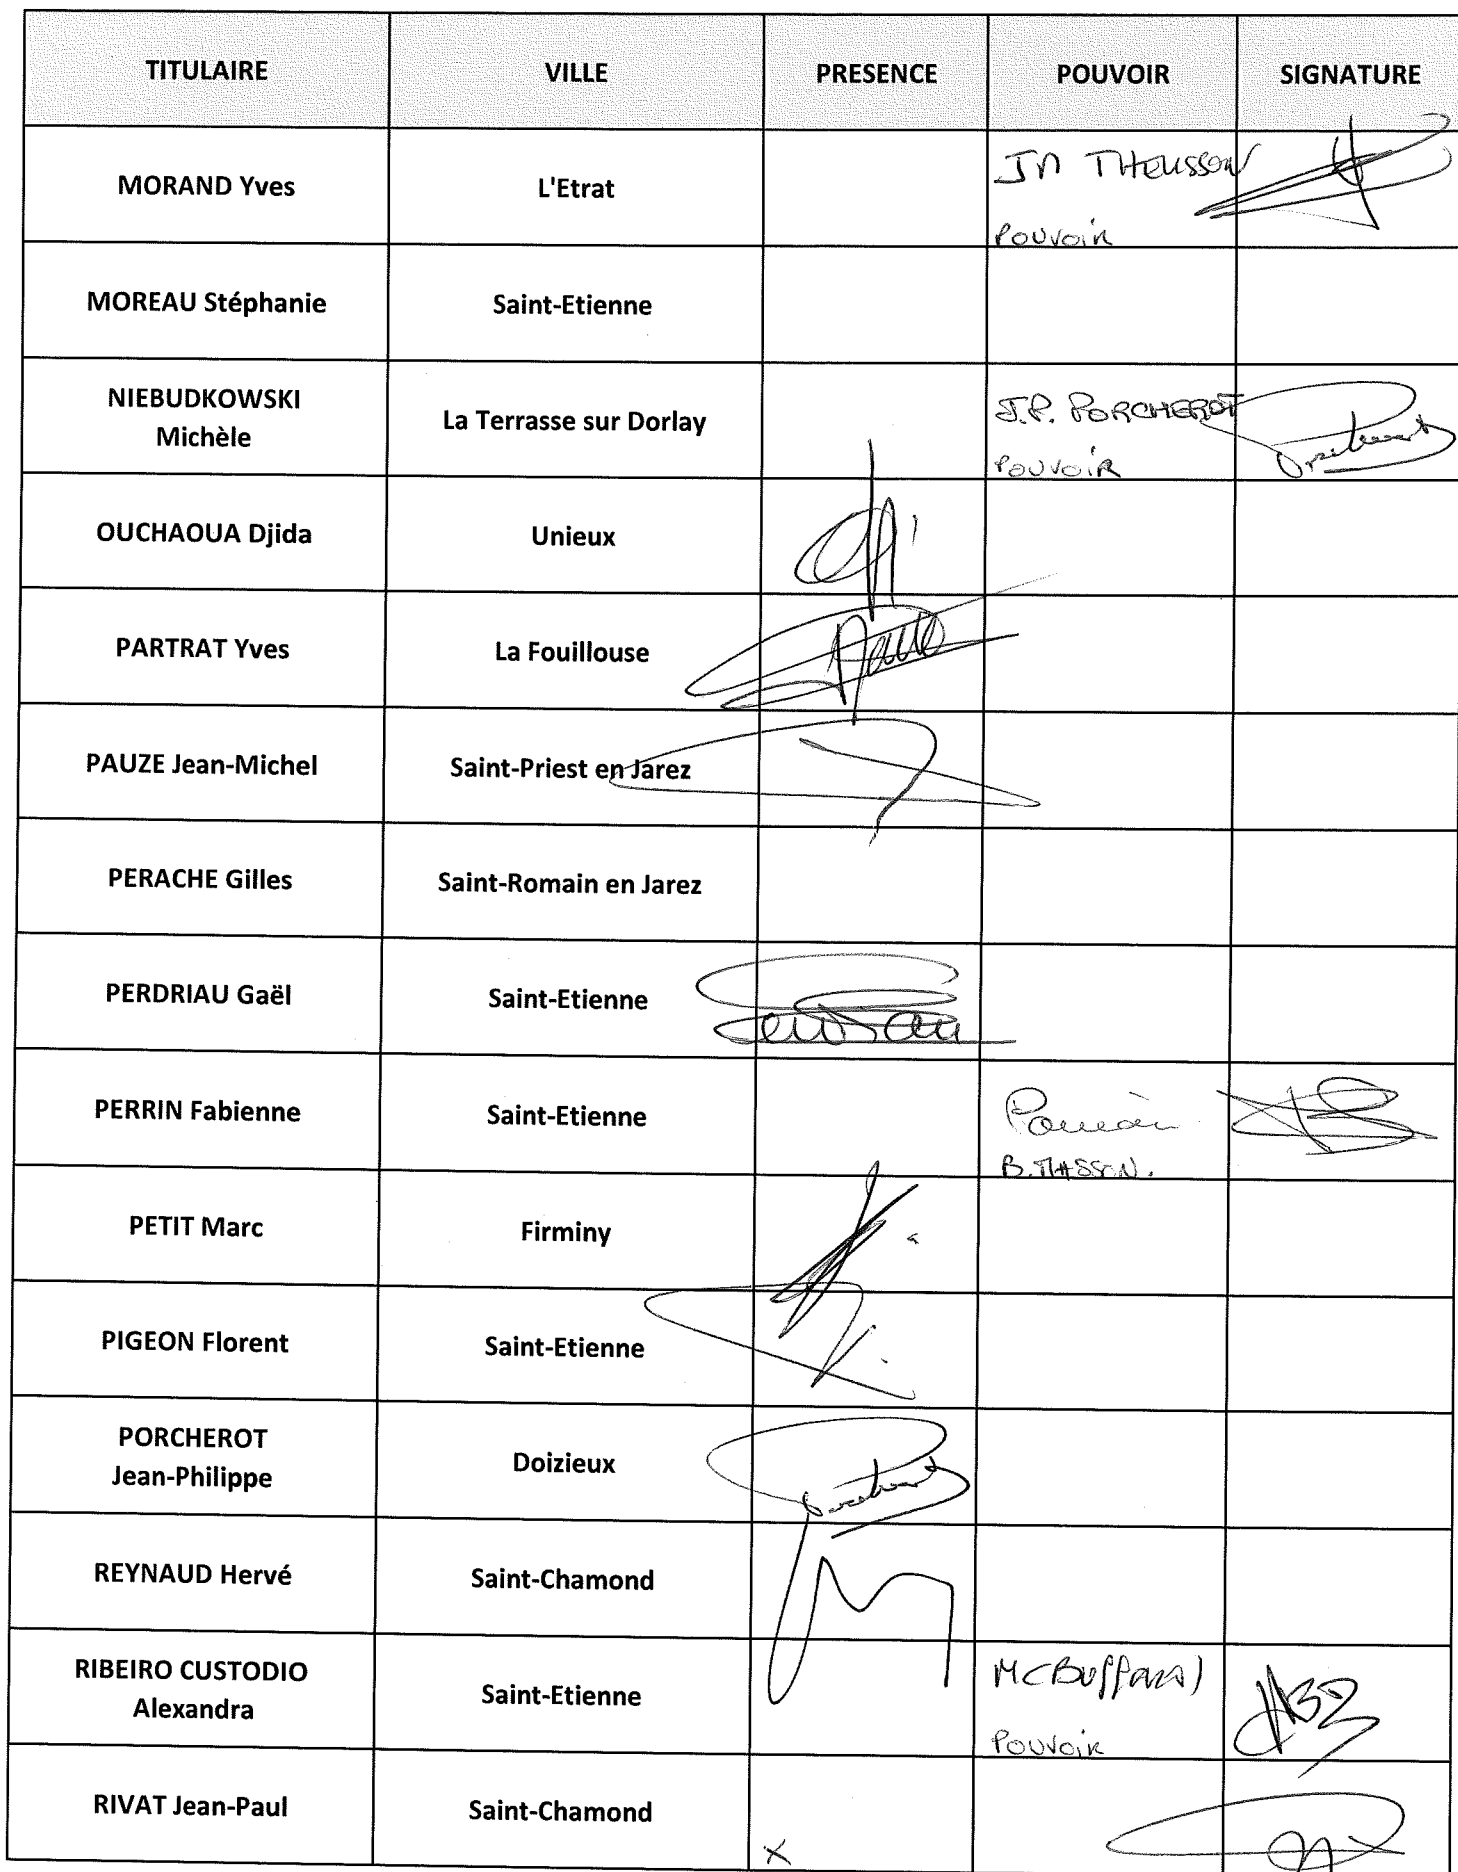 TITULAIRE VILLE PRESENCE POUVOIR SIGNATURE
MORAND Yves L'Etrat
Pouvoir
MOREAU Stéphanie Saint-Etienne
NIEBUDKOWSKI
Michèle
La Terrasse sur Dorlay
J.P. PORCHEROT
Pouvoir
OUCHAOUA Djida Unieux
PARTRAT Yves La Fouillouse
PAUZE Jean-Michel Saint-Priest en Jarez
PERACHE Gilles Saint-Romain en Jarez
PERDRIAU Gaël Saint-Etienne
PERRIN Fabienne Saint-Etienne
Pouvoir
B. MASSON.
PETIT Marc Firminy
PIGEON Florent Saint-Etienne
PORCHEROT
Jean-Philippe
Doizieux
REYNAUD Hervé Saint-Chamond
RIBEIRO CUSTODIO
Alexandra
Saint-Etienne
Pouvoir
RIVAT Jean-Paul Saint-Chamond
X